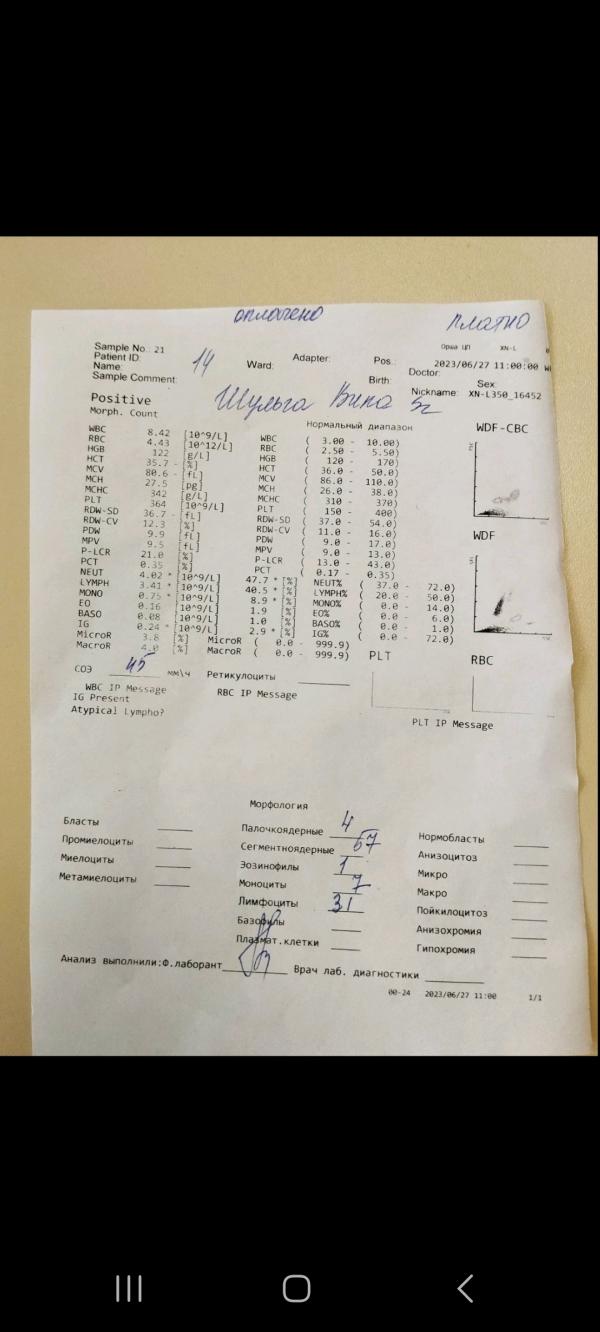 оплачено
платно
Орша ЦП XN-L
Sample No.: 21
Patient ID: 14 Ward: Adapter: Pos.: 2023/06/27 11:00:00
Name: Birth: Doctor:
Sample Comment: Sex:
Шульга Nickname: XN-L350_16452
Positive
Morph. Count
Нормальный диапазон
WDF-CBC
WBC 8.42 [10^9/L] WBC ( 3.00 - 10.00)
RBC 4.43 [10^12/L] RBC ( 2.50 - 5.50)
HGB 122 [g/L] HGB ( 120 - 170)
HCT 35.7 - [%] HCT ( 36.0 - 50.0)
MCV 80.6 - [fL] MCV ( 86.0 - 110.0)
MCH 27.5 [pg] MCH ( 26.0 - 38.0)
MCHC 342 [g/L] MCHC ( 310 - 370)
PLT 364 [10^9/L] PLT ( 150 - 400)
RDW-SD 36.7 - [fL] RDW-SD ( 37.0 - 54.0)
RDW-CV 12.3 [%] RDW-CV ( 11.0 - 16.0)
PDW 9.9 [fL] PDW ( 9.0 - 17.0)
MPV 9.5 [fL] MPV ( 9.0 - 13.0)
P-LCR 21.0 [%] P-LCR ( 13.0 - 43.0)
PCT 0.35 [%] PCT ( 0.17 - 0.35)
WDF
NEUT 4.02 * [10^9/L] 47.7 * [%] NEUT% ( 37.0 - 72.0)
LYMPH 3.41 * [10^9/L] 40.5 * [%] LYMPH% ( 20.0 - 50.0)
MONO 0.75 * [10^9/L] 8.9 * [%] MONO% ( 0.0 - 14.0)
EO 0.16 [10^9/L] 1.9 [%] EO% ( 0.0 - 6.0)
BASO 0.08 [10^9/L] 1.0 [%] BASO% ( 0.0 - 1.0)
IG 0.24 * [10^9/L] 2.9 * [%] IG% ( 0.0 - 72.0)
MicroR 3.8 [%] MicroR ( 0.0 - 999.9)
MacroR 4.0 [%] MacroR ( 0.0 - 999.9)
PLT RBC
СОЭ 45 мм\ч Ретикулоциты
WBC IP Message RBC IP Message PLT IP Message
IG Present
Atypical Lympho?
Морфология
Бласты Палочкоядерные 4 Нормобласты
Промиелоциты Сегментноядерные 57 Анизоцитоз
Миелоциты Эозинофилы 1 Микро
Метамиелоциты Моноциты 7 Макро
Лимфоциты 31 Пойкилоцитоз
Базофилы Анизохромия
Плазмат.клетки Гипохромия
Анализ выполнили:Ф.лаборант Врач лаб. диагностики
00-24 2023/06/27 11:00 1/1